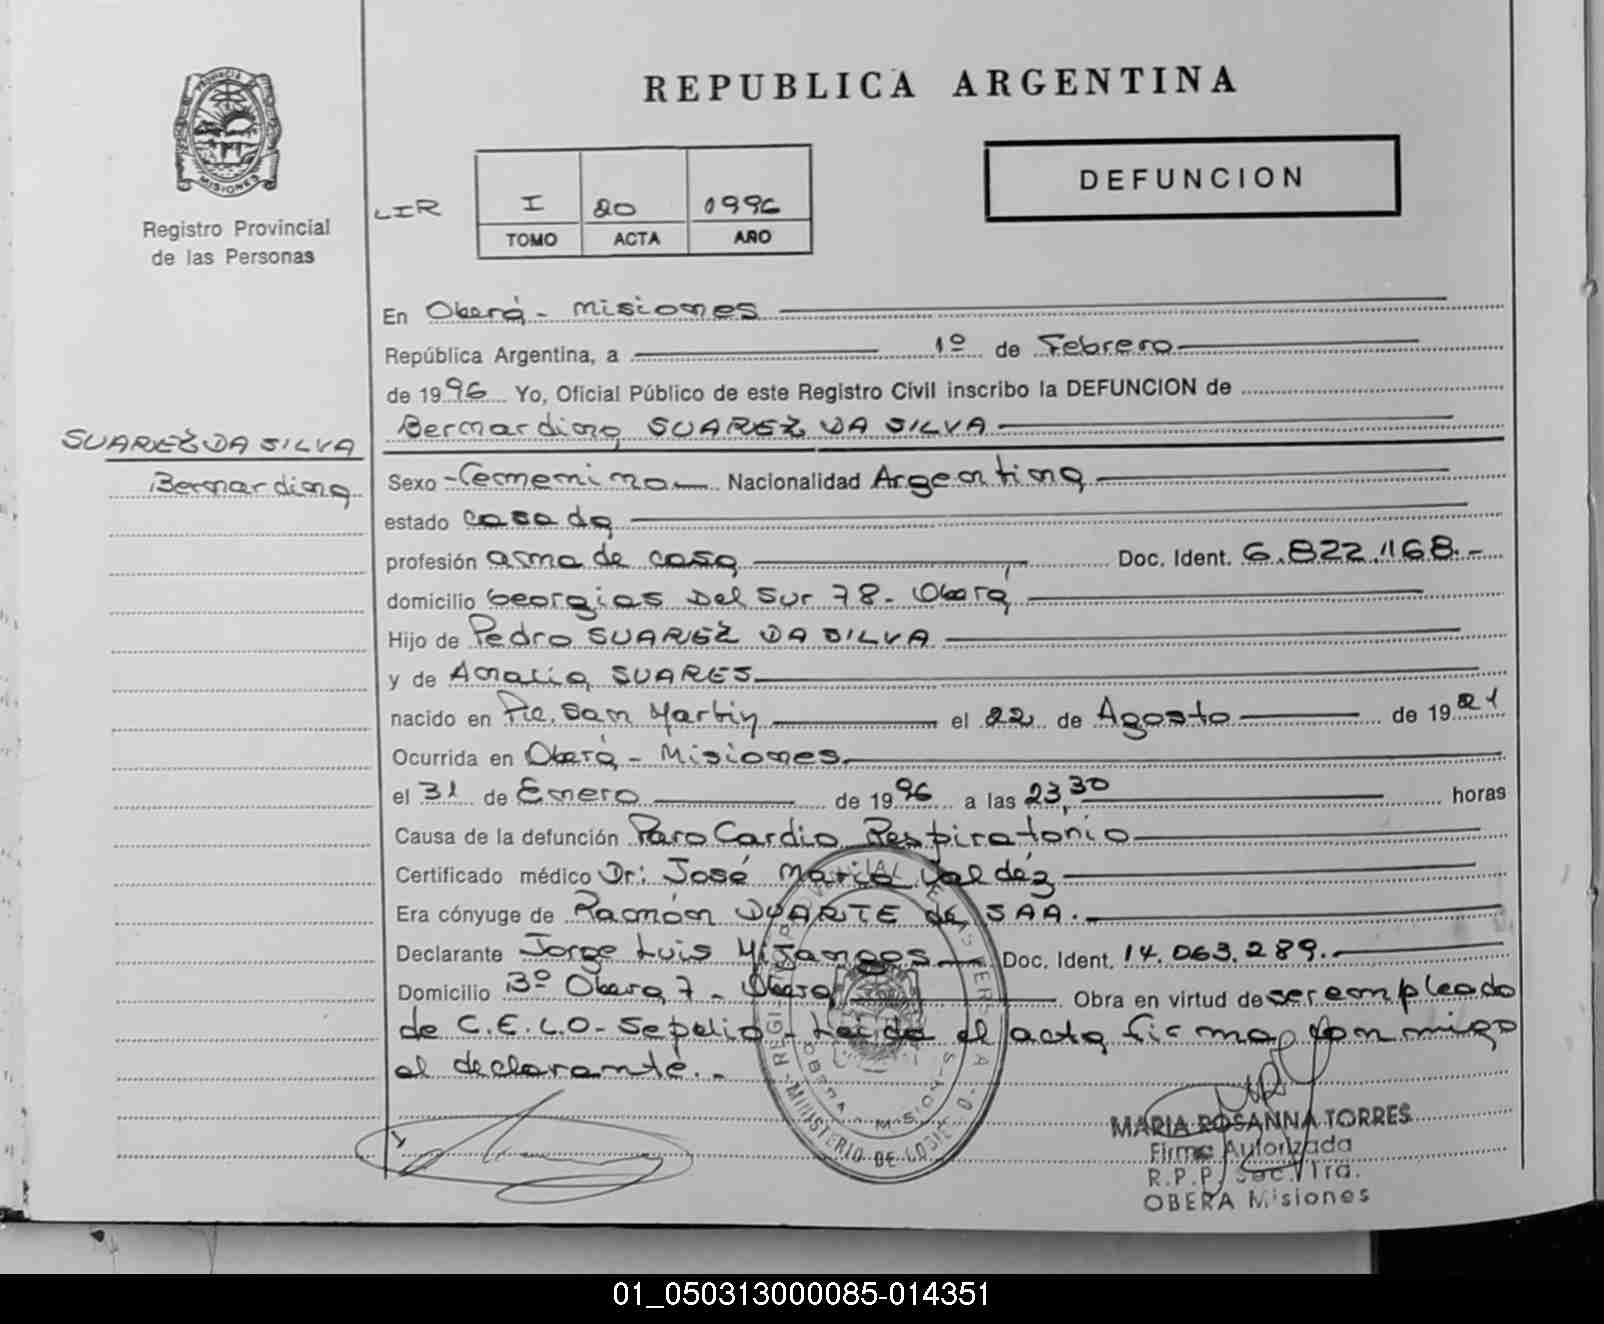 REPUBLICA ARGENTINA
PROVINCIA DE
MISIONES
Registro Provincial
de las Personas
DEFUNCION
LIR I 20 1996
TOMO ACTA AÑO
En Oberá - Misiones
República Argentina, a 1º de Febrero
de 1996 Yo, Oficial Público de este Registro Civil inscribo la DEFUNCION de
Bernardina SUAREZ DA SILVA
SUAREZ DA SILVA
Bernardina
Sexo Femenino Nacionalidad Argentina
estado casada
profesión ama de casa Doc. Ident. 6.822.168.-
domicilio Georgias Del Sur 78 - Oberá
Hijo de Pedro SUAREZ DA SILVA
y de Analia SUARES
nacido en Pto. San Martin el 22 de Agosto de 1921
Ocurrida en Oberá - Misiones
el 31 de Enero de 1996 a las 23,30 horas
Causa de la defunción Paro Cardio Respiratorio
Certificado médico Dr: José Maria Valdéz
Era cónyuge de Ramón DUARTE de SAA.
Declarante Jorge Luis Mijangos Doc. Ident. 14.063.289.
Domicilio Bº Obera 7 - Oberá Obra en virtud de ser empleado
de C.E.L.O - Sepelio - Leida el acta firma conmigo
el declarante. -
OBERA - MISIONES
MINISTERIO DE GOBIERNO
MARIA ROSANNA TORRES
Firma Autorizada
R.P.P. Sec. 1ra.
OBERA Misiones
01_050313000085-014351